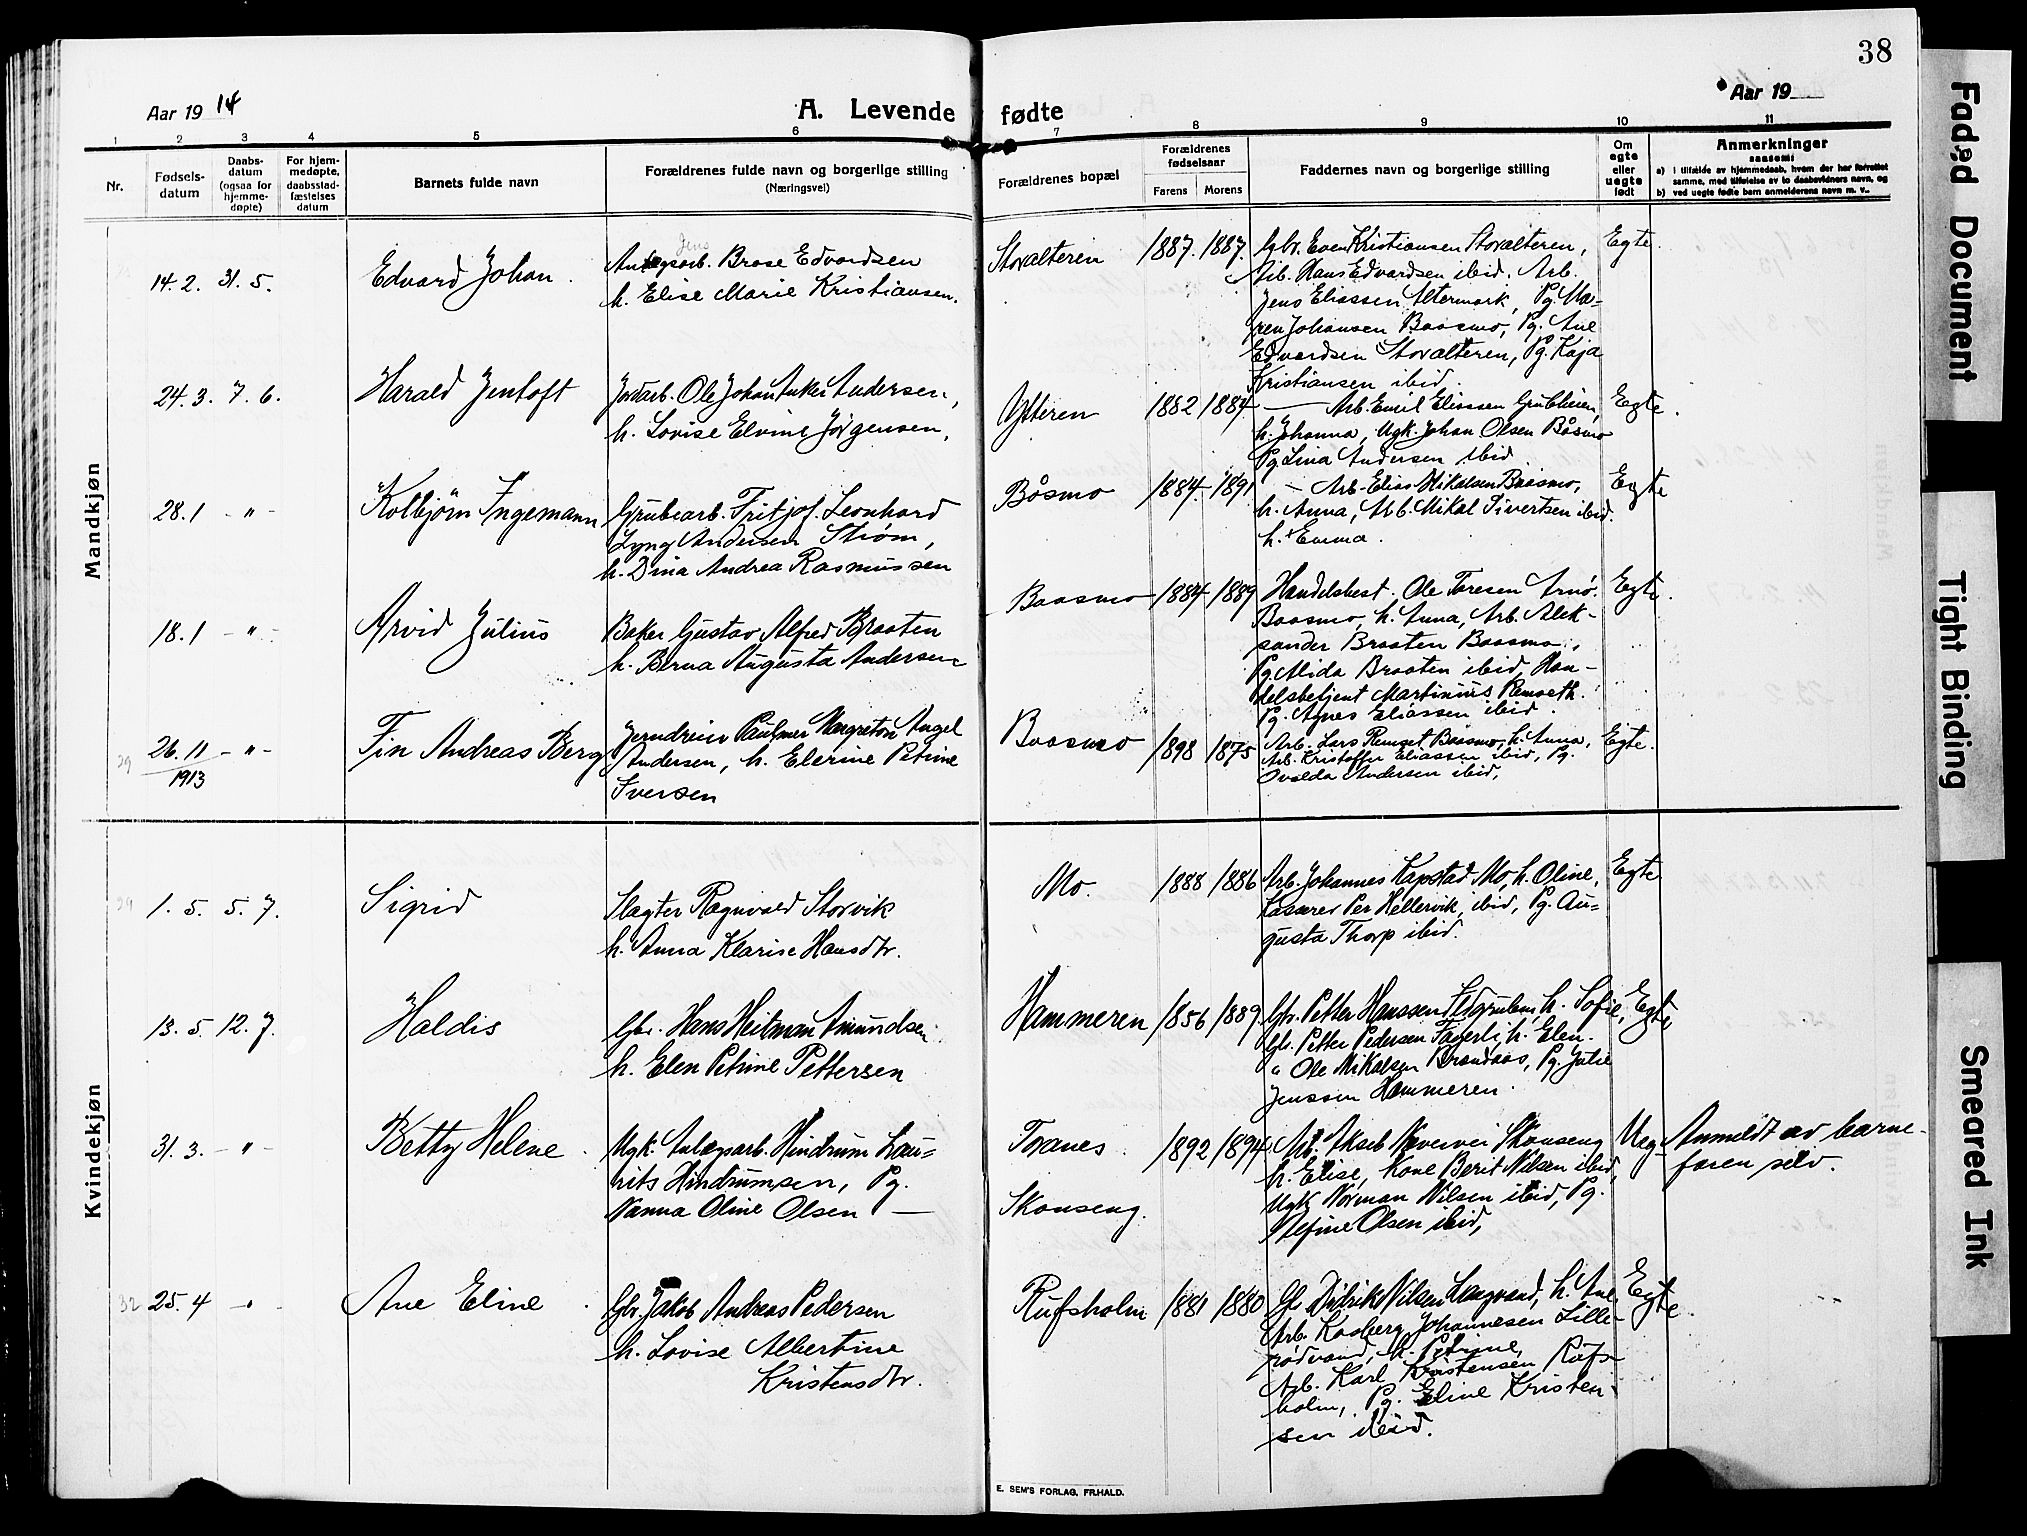 38
Aar 19 14
A. Levende fødte
Aar 19
1 2 3 4 5 6 7 8 9 10 11
Nr.
Fødsels-
datum
Daabs-
datum
(ogsaa for
hjemme-
døpte)
For hjem-
medøpte,
daabsstad-
fæstelses
datum
Barnets fulde navn
Forældrenes fulde navn og borgerlige stilling
(Næringsvei)
Forældrenes bopæl
Forældrenes
fødselsaar
Farens Morens
Faddernes navn og borgerlige stilling
Om
egte
eller
uegte
født
Anmerkninger
saasom:
a) i tilfælde av hjemmedaab, hvem der har forrettet
samme, med tilføielse av to daabsvidners navn, og
b) ved uegte fødte barn anmelderens navn m. v..
Mandkjøn
14.2. 31.5.
Edvard Johan
Jens
Anlægsarb. Brose Edvardsen
h. Elise Marie Kristiansen.
Storalteren
1887. 1887.
Gbr. Even Kristiansen Storalteren,
Arb. Hans Edvardsen ibid. Arb.
Jens Eliassen Altermark, Pg. Ma-
ren Johansen Baasmo, Pg. Ane
Edvardsen Storalteren, Pg. Kaja
Kristiansen ibid.
Egte.
24.3. 7.6.
Harald Jentoft
Jordarb. Ole Johan Anker Andersen,
h. Lovise Elvine Jørgensen,
Ytteren
1882 1884
— Arb. Emil Eliassen Grubheien,
h. Johanna, Ugk. Johan Olsen Båsmo
Pg. Lina Andersen ibid
Egte.
28.1 - " -
Kolbjörn Ingemann
Grubearb. Fritjof Leonhard
Lyng Andersen Strøm,
h. Dina Andrea Rasmussen
Båsmo
1884. 1891
— Arb. Elias Mikalsen Baasmo,
h. Anna, Arb. Mikal Sivertsen ibid.
h. Emma.
Egte
18.1 - " -
Arvid Julius
Baker Gustav Alfred Braaten
h. Berna Augusta Andersen
Baasmo
1884 1889
Handelsbest. Ole Toresen Arnø.
Baasmo, h. Anna, Arb. Alek-
sander Braaten Baasmo,
Pg. Alida Braaten ibid, Han-
delsbetjent Martinius Remseth.
Pg. Agnes Eliassen ibid.
Egte.
29
26.11 - " -
1913
Fin Andreas Berg
Andersen, h. Elerine Petrine
Iversen
Baasmo
1898 1875
Arb. Lars Remset Baasmo, h. Anna,
Arb. Kristoffer Eliassen ibid, Pg.
Ovalda Andersen ibid,
Egte.
Kvindekjøn
29
1.5. 5.7.
Sigrid
Slagter Ragnvald Storvik
h. Anna Klarise Hansdtr.
Mo.
1888 1886
Arb. Johannes Kapstad Mo, h. Oline,
Kaserer Per Hellervik, ibid, Pg. Au-
gusta Thorp ibid.
Egte
13.5. 12.7.
Haldis
Gbr. Hans Heitman Amundsen
h. Elen Petrine Pettersen
Hammeren
1856 1889.
Gbr. Petter Hanssen h. Sofie,
Gb. Petter Pedersen Fagerli, h. Elen.
" Ole Mikalsen Brandaas, Pg. Julie
Jenssen Hammeren.
Egte
31.3. - " -
Betty Helene
Ugk. Anlægsarb. Hindrum Lau-
rits Hindrumsen, Pg.
Nanna Oline Olsen —
Tranes
Skonseng.
1892 1894
Arb. Aksel Nevervei Skonseng
h. Elise, Kone Berit Nilsen ibid,
Ugk. Norman Nilsen ibid, Pg.
Alfine Olsen ibid,
Ueg-
Anmeldt av barne-
faren selv.
32
25.4 - " -
Ane Eline
Gbr. Jakob Andreas Pedersen
h. Lovise Albertine
Kristensdtr.
Rufsholm
1881 1880
Gb Didrik Nilsen Langvand, h. Ane
Arb. Kasberg Johannesen Lille-
rødvand, h. Petrine,
Arb. Karl Kristensen Rufs-
holm, Pg. Eline Kristen-
sen ibid.
Egte.
E. SEM'S FORLAG, FR.HALD.
Faded Document
Tight Binding
Smeared Ink